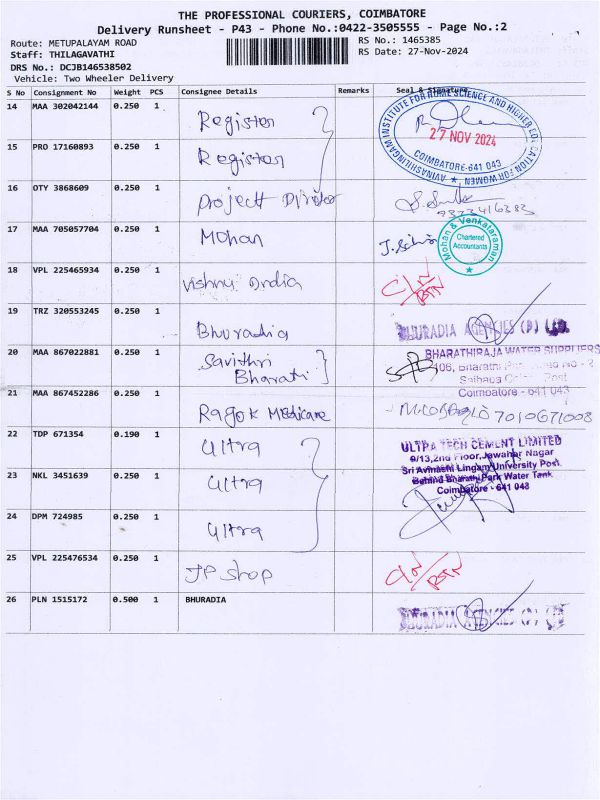 THE PROFESSIONAL COURIERS, COIMBATORE
Delivery Runsheet - P43 - Phone No.:0422-3505555 - Page No.:2
Route: METUPALAYAM ROAD
RS No.: 1465385
Staff: THILAGAVATHI
RS Date: 27-Nov-2024
DRS No.: DCJB146538502
Vehicle: Two Wheeler Delivery
S No Consignment No Weight PCS Consignee Details Remarks Seal & Signature
14 MAA 302042144 0.250 1 Register
AVINASHILINGAM INSTITUTE FOR HOME SCIENCE AND HIGHER EDUCATION FOR WOMEN
27 NOV 2024
COIMBATORE-641 043
15 PRO 17160893 0.250 1 Register
16 OTY 3868609 0.250 1 Project Director
17 MAA 705057704 0.250 1 Mohan
Mohan & Venkataraman
Chartered
Accountants
18 VPL 225465934 0.250 1 Vishnu India
19 TRZ 320553245 0.250 1 Bhuradia
BHURADIA AGENCIES (P) LTD.
20 MAA 867022881 0.250 1 Savithri
Bharati
BHARATHIRAJA WATER SUPPLIERS
Coimbatore - 641 043
21 MAA 867452286 0.250 1 Ragok Medicare
7010671008
22 TDP 671354 0.190 1 Ultra
ULTRA TECH CEMENT LIMITED
9/13,2nd Floor,Jawahar Nagar
Sri Avinashi Lingam University Post
Behind Bharathi Park Water Tank
Coimbatore - 641 043
23 NKL 3451639 0.250 1 Ultra
24 DPM 724985 0.250 1 Ultra
25 VPL 225476534 0.250 1 JP shop
26 PLN 1515172 0.500 1 BHURADIA
BHURADIA AGENCIES (P) LTD.